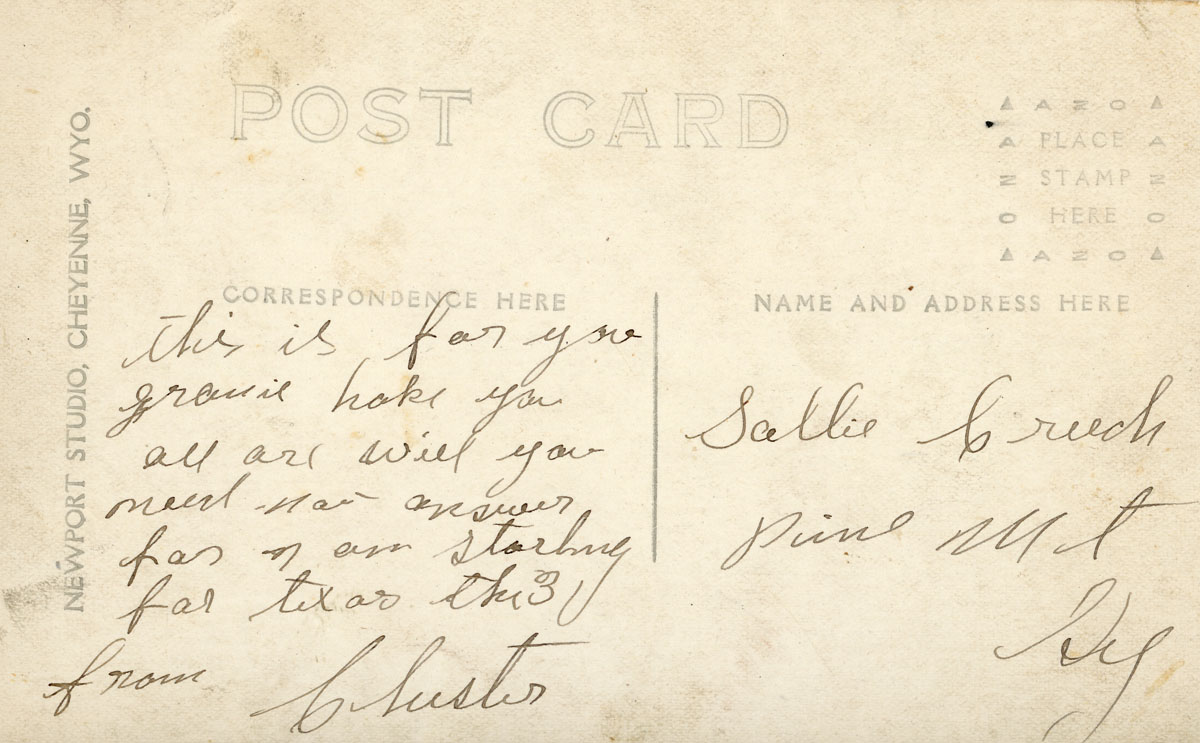 POST CARD
NEWPORT STUDIO, CHEYENNE, WYO.
AZO
A PLACE A
Z STAMP Z
O HERE O
AZO
CORRESPONDENCE HERE
NAME AND ADDRESS HERE
this is for you
granie hope you
all are well you
need not answer
for I am starting
for texas the 3
from Chester
Sallie Creech
Pine Mt
Ky